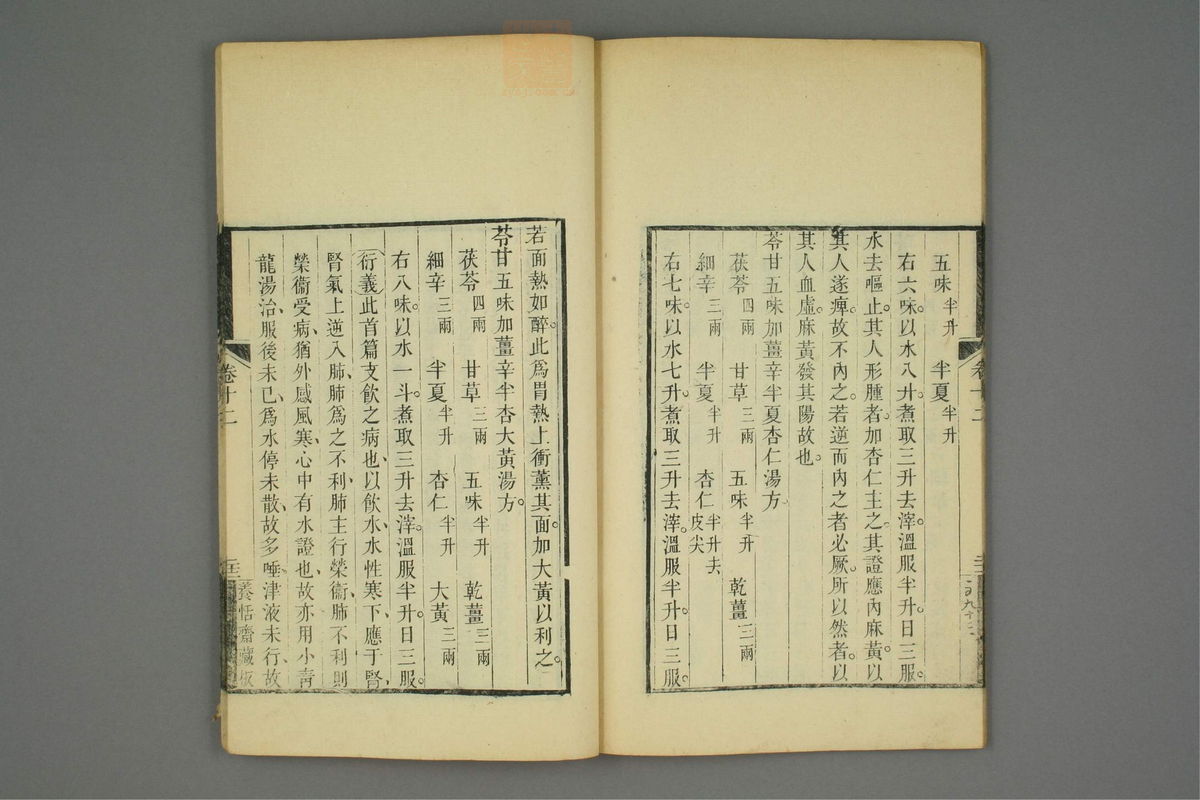 五味半升　半夏半升
右六味。以水八升。煮取三升去滓。溫服半升。日三服。
水去嘔止。其人形腫者。加杏仁主之。其證應內麻黃。以
其人遂痺。故不內之。若逆而內之者必厥。所以然者。以
其人血虛。麻黃發其陽故也。
苓甘五味加薑辛半夏杏仁湯方。
茯苓四兩　甘草三兩　五味半升　乾薑三兩
細辛三兩　半夏半升　杏仁半升去皮尖
右七味。以水七升。煮取三升去滓。溫服半升。日三服。
卷十二
若面熱如醉。此爲胃熱上衝薰其面。加大黃以利之。
苓甘五味加薑辛半杏大黃湯方。
茯苓四兩　甘草三兩　五味半升　乾薑三兩
細辛三兩　半夏半升　杏仁半升　大黃三兩
右八味。以水一斗。煮取三升去滓。溫服半升。日三服。
衍義此首篇支飲之病也、以飲水、水性寒下、應于腎、
腎氣上逆入肺、肺爲之不利、肺主行榮衞、肺不利則
榮衞受病、猶外感風寒、心中有水證也、故亦用小青
龍湯治、服後未已、爲水停未散、故多唾、津液未行、故
卷十二
養恬齋藏板